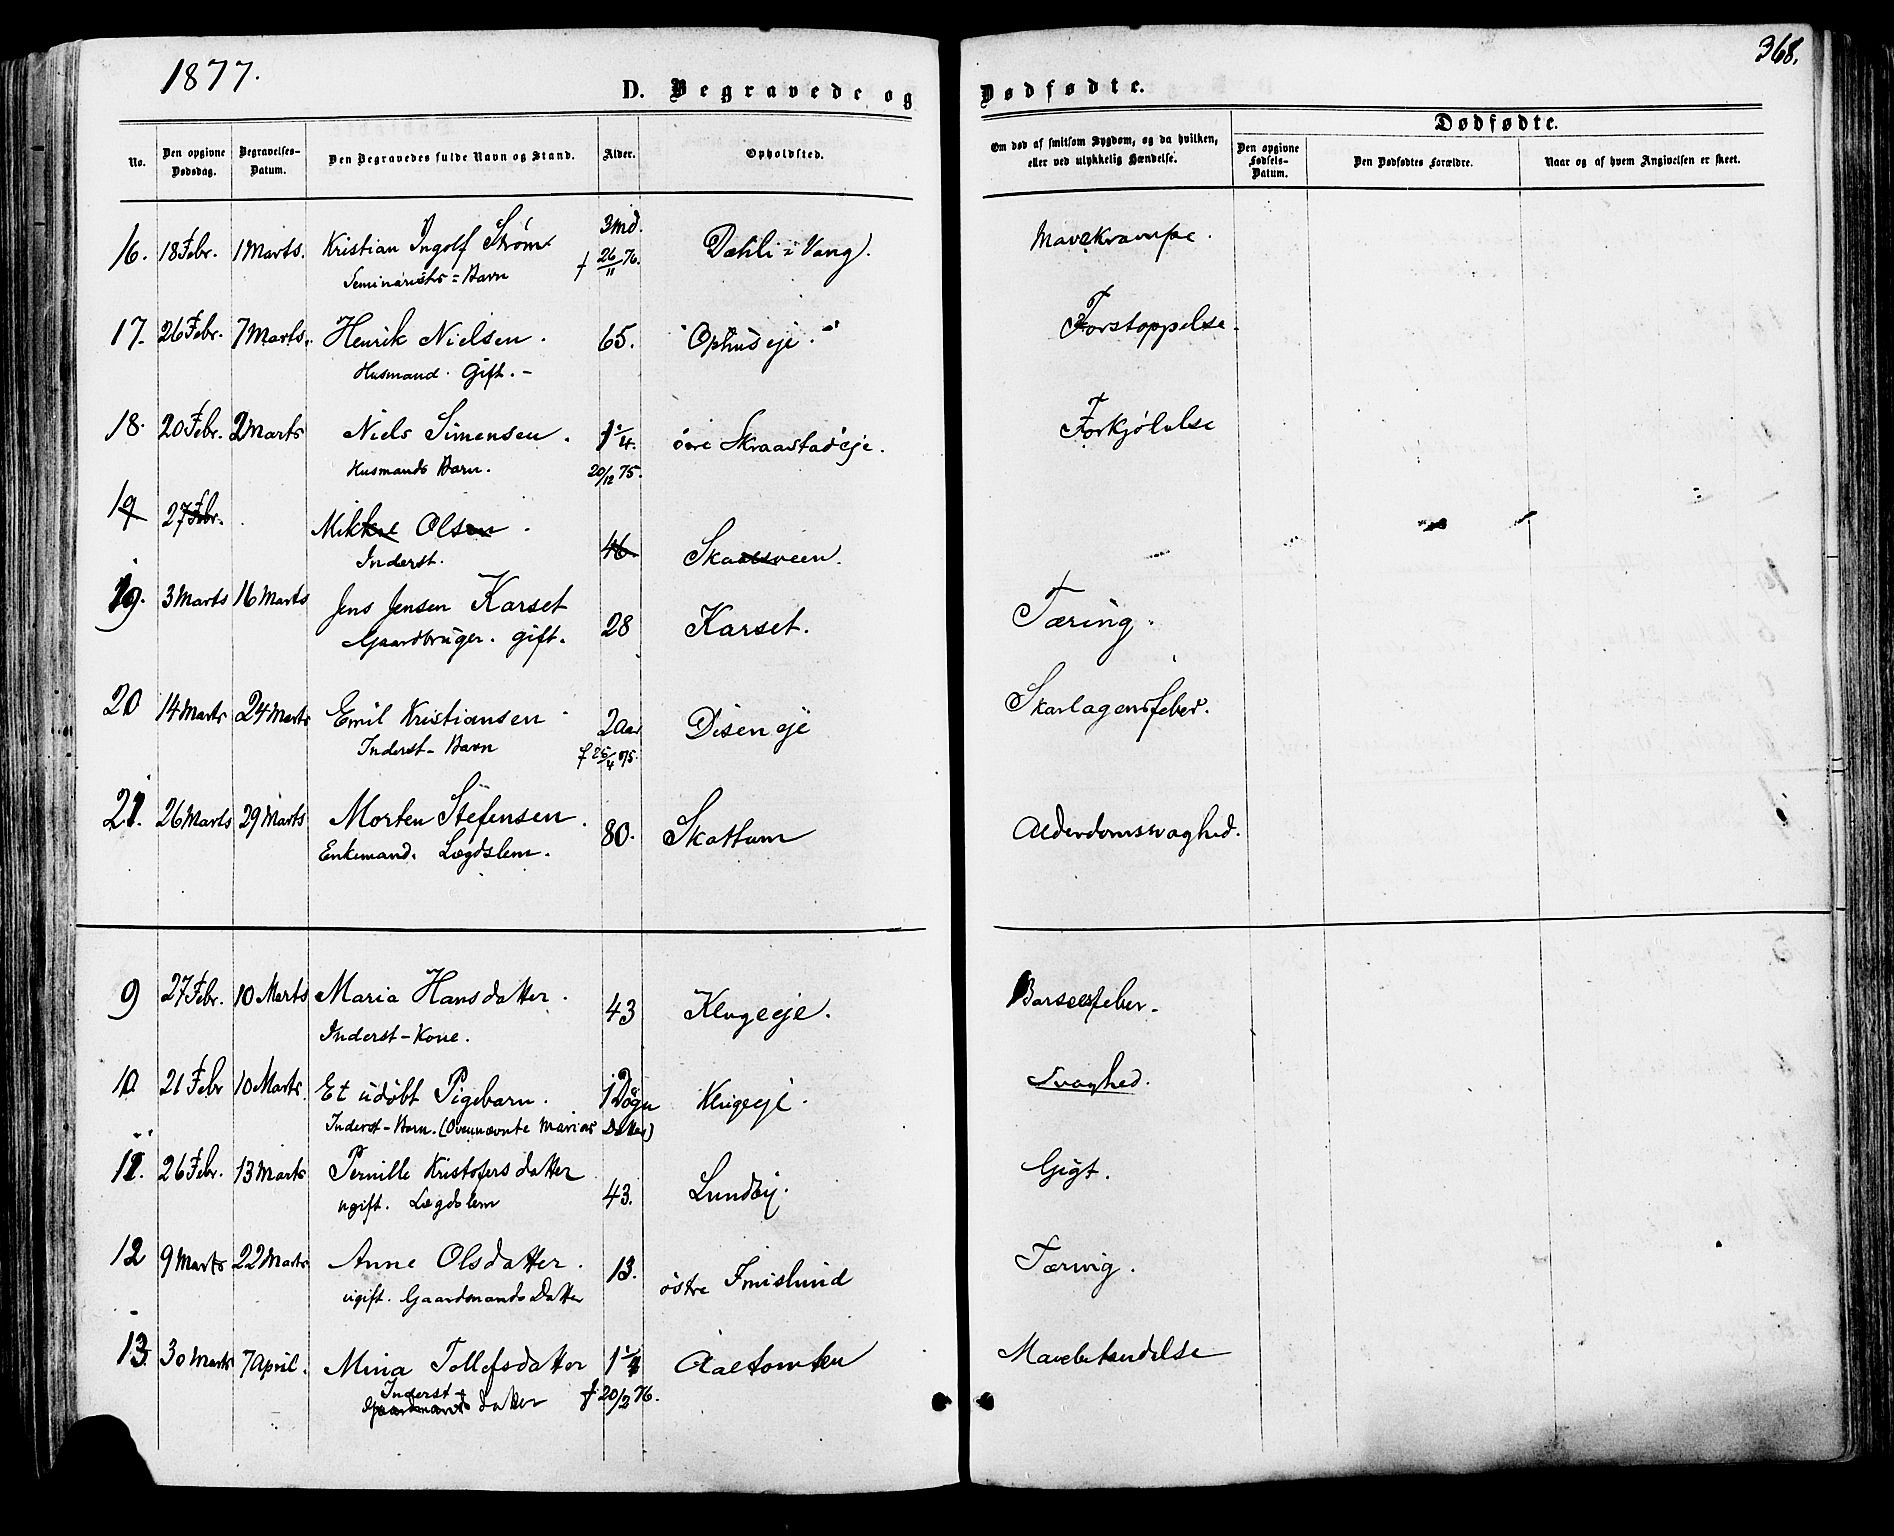 1877.
368.
D. Begravede og Dødfødte.
No.
Den opgivne Dødsdag.
Begravelses-Datum.
Den Begravedes fulde Navn og Stand.
Alder.
Opholdsted.
Om død af smitsom Sygdom, og da hvilken, eller ved ulykkelig Hændelse.
Dødfødte.
Den opgivne Fødsels-Datum.
Den Dødfødtes Forældre.
Naar og af hvem Angivelsen er skeet.
16. 18 Febr. 1 Marts. Kristian Ingolf Strøm 3 Md. Dæhli i Vang. Mavekrampe.
Seminarists-Barn f 26/11 76.
17. 26 Febr. 7 Marts. Henrik Nielsen. 65. Ophuseje. Forstoppelse.
Husmand. Gift.
18. 20 Febr. 2 Marts Niels Simensen. 1 1/4. övre Skraastadeje. Forkjölelse
Husmands Barn. 20/12 75.
19 27 Febr. Mikkel Olsen. 46 Skaarsveen.
Inderst.
19. 3 Marts 16 Marts Jens Jensen Karset 28 Karset. Tæring.
Gaardbruger. gift.
20 14 Marts 24 Marts Emil Kristiansen 2 Aar Disen eje Skarlagensfeber.
Inderst-Barn f 25/4 75.
21. 26 Marts 29 Marts Morten Stefensen. 80. Skattum Alderdomssvaghed.
Enkemand. Lægdslem.
9 27 Febr. 10 Marts Maria Hansdatter. 43 Klugeeje. Barselfeber.
Inderst-Kone.
10 21 Febr 10 Marts. Et udöbt Pigebarn. 1 Døgn Klugeeje. Svaghed.
Inderst-Barn. (Ovennævnte Marias Datter)
11. 26 Febr. 13 Marts Pernille Kristofersdatter 43. Lundby. Gigt.
ugift. Lægdslem
12 9 Marts 22 Marts Anne Olsdatter. 13. östre Imislund Tæring.
ugift. Gaardmands Datter
13. 30 Marts 7 April. Mina Tollefsdatter 1 1/4 Aaltomten Mavebetændelse
Inderst-
Gaardmands datter f. 20/2 76.